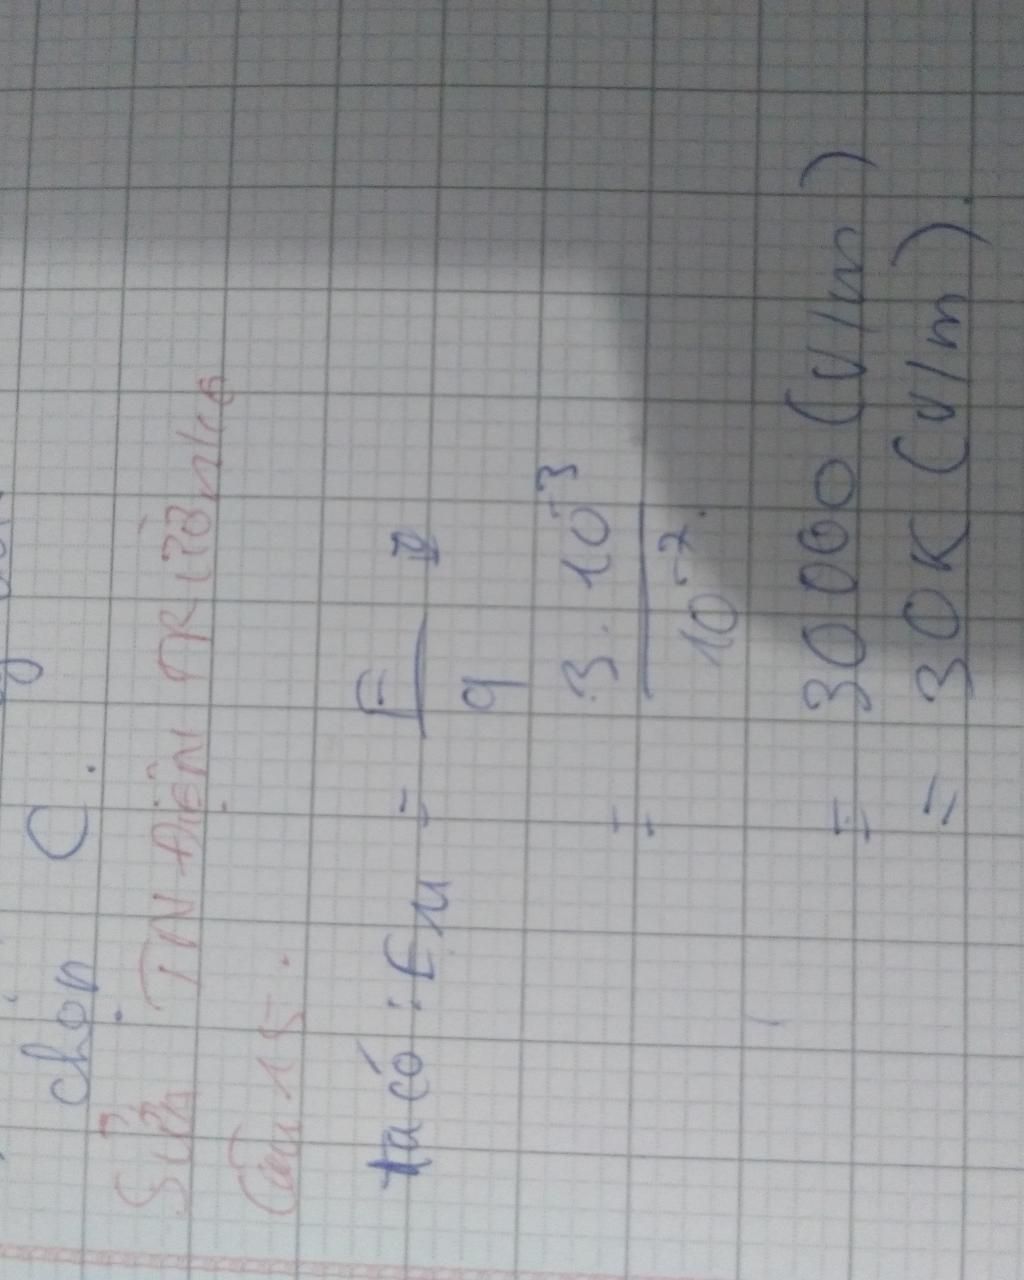 chọn C.
Sửa TN ĐIỆN TRƯỜNG
Câu 15.
ta có : EM = F
q
= 3.10^-3
10^-7.
= 30000 (V/m)
= 30K (V/m).